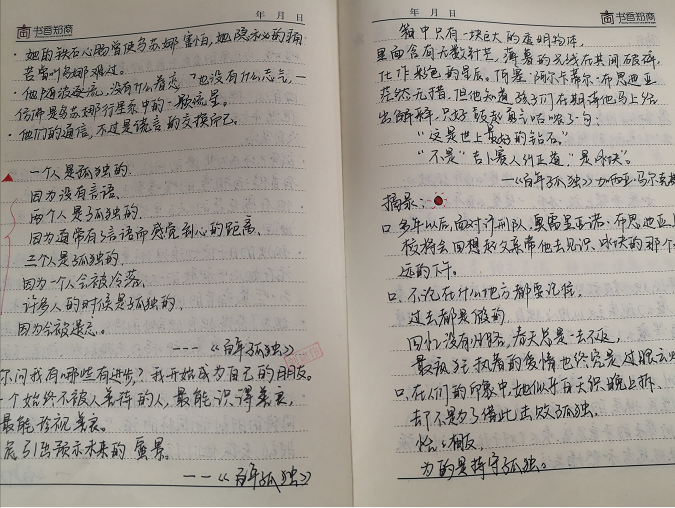 年 月 日
书香郑商
· 她的铁石心肠曾使乌苏娜害怕,她隐秘的痛
苦曾叫乌娜难过。
· 他随波逐流,没有什么眷恋,也没有什么志气,一
仿佛是乌苏娜行星系中的一颗流星。
· 他们的通信,不过是谎言的交换而已。
一个人是孤独的,
因为没有言语,
两个人是孤独的,
因为通常有言语而感觉到心的距离,
三个人是孤独的,
因为一个人会被冷落,
许多人的时候是孤独的,
因为会被遗忘。
———《百年孤独》
你问我有哪些有进步?我开始成为自己的朋友。
个始终不被人善待的人,最能识得善良,
最能珍视善良。
危引出预示未来的蜃景。
——《百年孤独》
年 月 日
书香郑商
箱中只有一块巨大的透明物体,
里面含有无数针芒,薄暮的光线在其间破碎,
化作彩色的星辰。何塞·阿尔卡蒂奥·布恩迪亚
茫然无措,但他知道孩子们在期待他马上给
出解释,只好鼓起勇气咕哝了一句:
“这是世上最好的钻石。”
“不是”吉卜赛人纠正道,“是冰块”。
——《百年孤独》加西亚·马尔克斯
摘录:
口 多年以后,面对行刑队,奥雷里亚诺·布恩迪亚上
校将会回想起父亲带他去见识冰块的那个
远的下午。
口、不论在什么地方都要记住,
过去都是假的
回忆没有归路,春天总是一去不返,
最疯狂执着的爱情也终究是过眼云
口、在人们的印象中,她似乎白天织晚上拆,
却不是为了借此击败孤独,
恰恰相反,
为的是持守孤独。